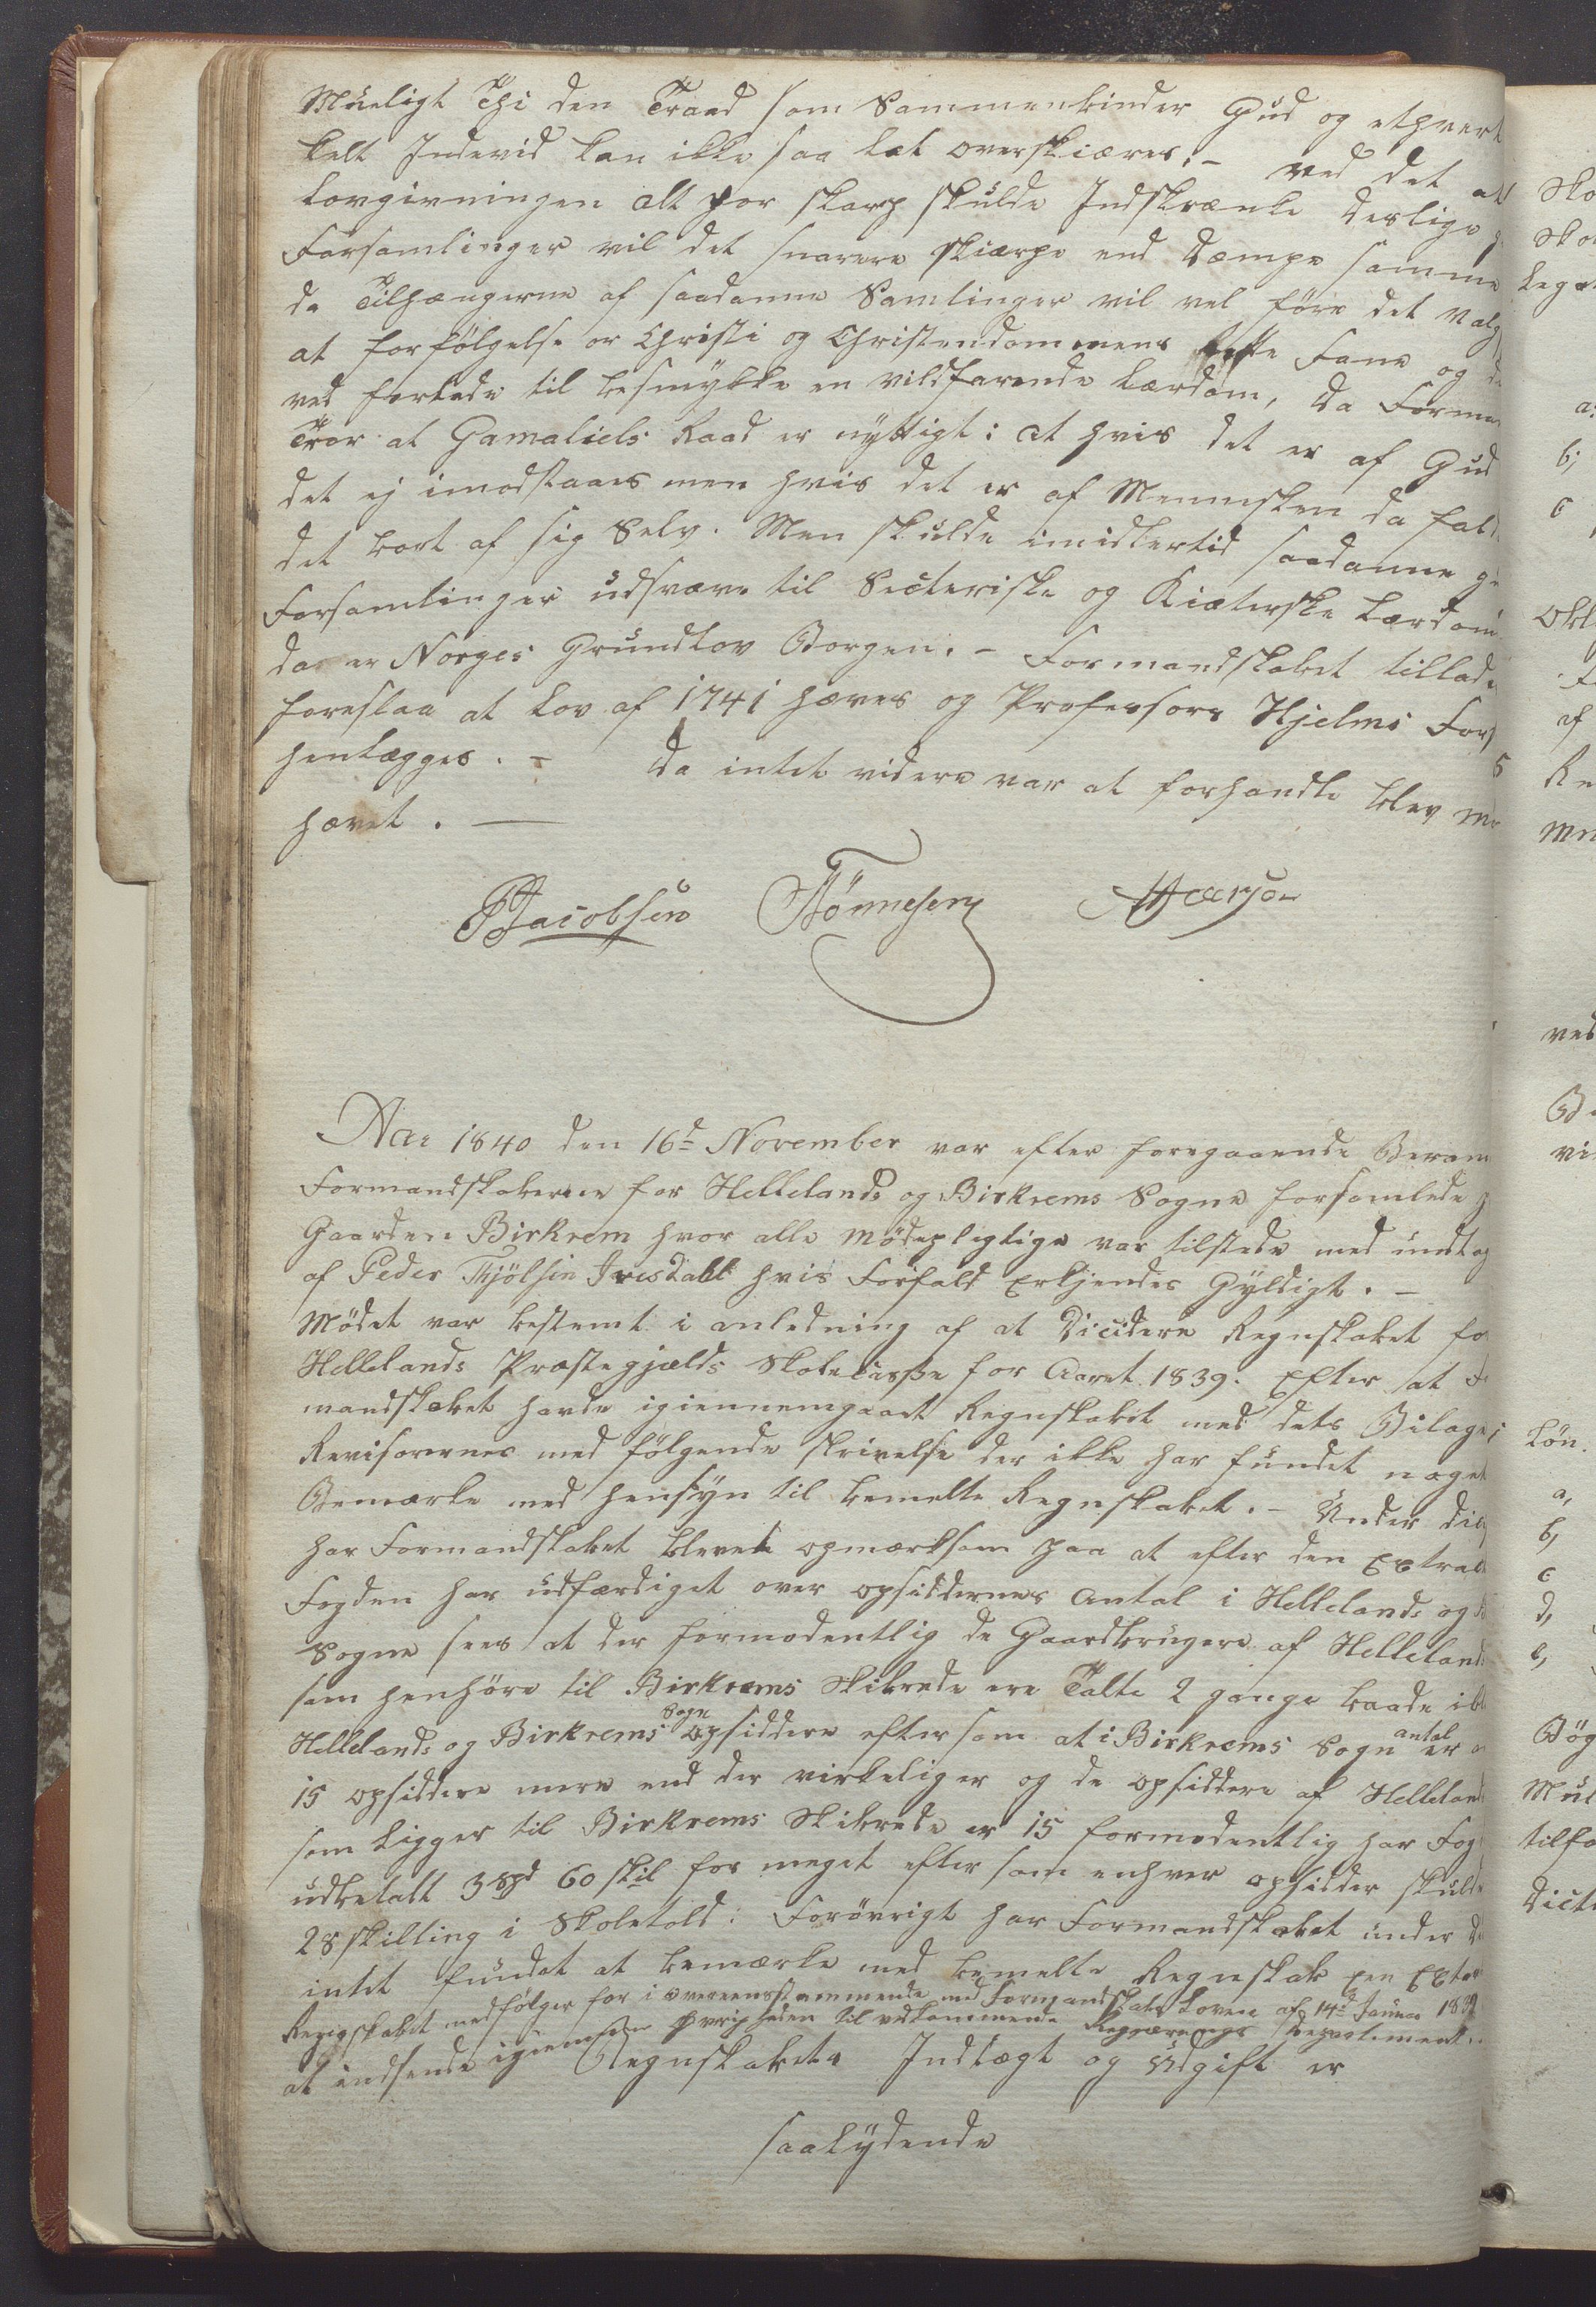 Mueligt Thi den Traad som Sammenbinder Gud og ethvert
kelt Indevid kan ikke saa let overskiæres; - ved det at
Lovgivningen alt for skarp skulde Indskrænke derlige
Forsamlinger vil det snarere skiærpe end dæmpe samme
da Tilhængerne af saadanne Samlinger vil vel före det Valg
at forfölgelse er Christi og Christendommens Fane og
ved forlede til besmykke en vildfarende Lærdom, da Form
Tror at Gamaliels Raad er nyttigt: at hvis det er af Gud
det ej imodstaaes men hvis det er af Mennesken da fal
det bort af sig Selv. Men skulde imidlertid saadanne
Forsamlinger udsvære til Secteriske og Kiæterske Lærdom
da er Norges Grundlov Borgen. - Formandskabet tillade
foreslaa at Lov af 1741 hæves og Professors Hjelms Fors
henlægges. - Da intet videre var at forhandle blev m
hævet. -
Jacobsen Tönnesen
Aar 1840 den 16d November var efter foregaaende Beram
Formandskaberne for Hellelands og Birkrems Sogne forsamlede
Gaarden Birkrem hvor alle Mödepligtige var tilstede med undtag
af Peder Thjölsin Ivesdall hvis Forfald Erkjendes Gyldigt. -
Mödet var bestemt i anledning af at Dicidere Regnskabet fo
Hellelands Præstegjælds Skolecasse for Aaret 1839. Efter at F
mandskabet havde igiennemgaaet Regnskabet med dets Bilage;
Revisorernes med fölgende skrivelse der ikke har fundet noget
Bemærke med hensyn til bemelte Regnskabet. - Under dic
har Formandskabet blevet opmærksom paa at efter den Extra
Fogden har udfærdiget over opsiddernes Antal i Hellelands og
Sogne sees at der formodentlig de Gaardbrugere af Helleland
som henhöre til Birkrems Skibrede ere Talte 2 gange baade ibl
Hellelands og Birkrems Sogn opsiddere eftersom at i Birkrems Sogn antal er
15 opsiddere mere end der virkelig er og de opsiddere af Helleland
som Ligger til Birkrems Skibrede er 15 formodentlig har Fog
udbetalt 3 Spd 60 skil for meget eftersom enhver opsidder skuld
28 skilling i Skoletold: Forövrigt har Formandskabet under
intet fundet at bemærke med bemelte Regnskab
Regnskabet medfölger for i overeensstemmende med Formandskabs Loven af 14d Januar 183
at indsende igiennem Övrigheden til vedkommende Regjærings Departement
Regnskabets Indtægt og Udgift er
saalydende